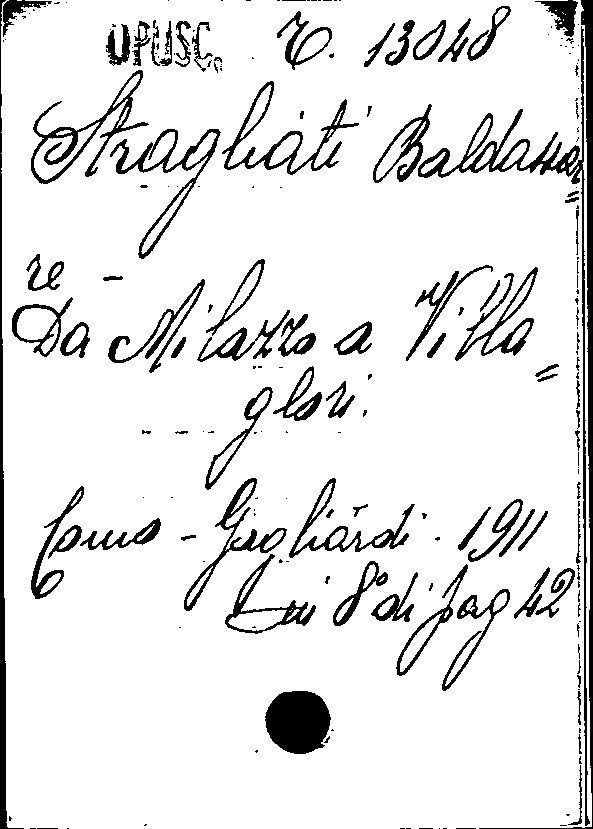 OPUSC. C. 13048
Stragliati Baldassar=
re -
Da Milazzo a Villa=
glori.
Como - Gagliardi. 1911
in 8° di pag 42